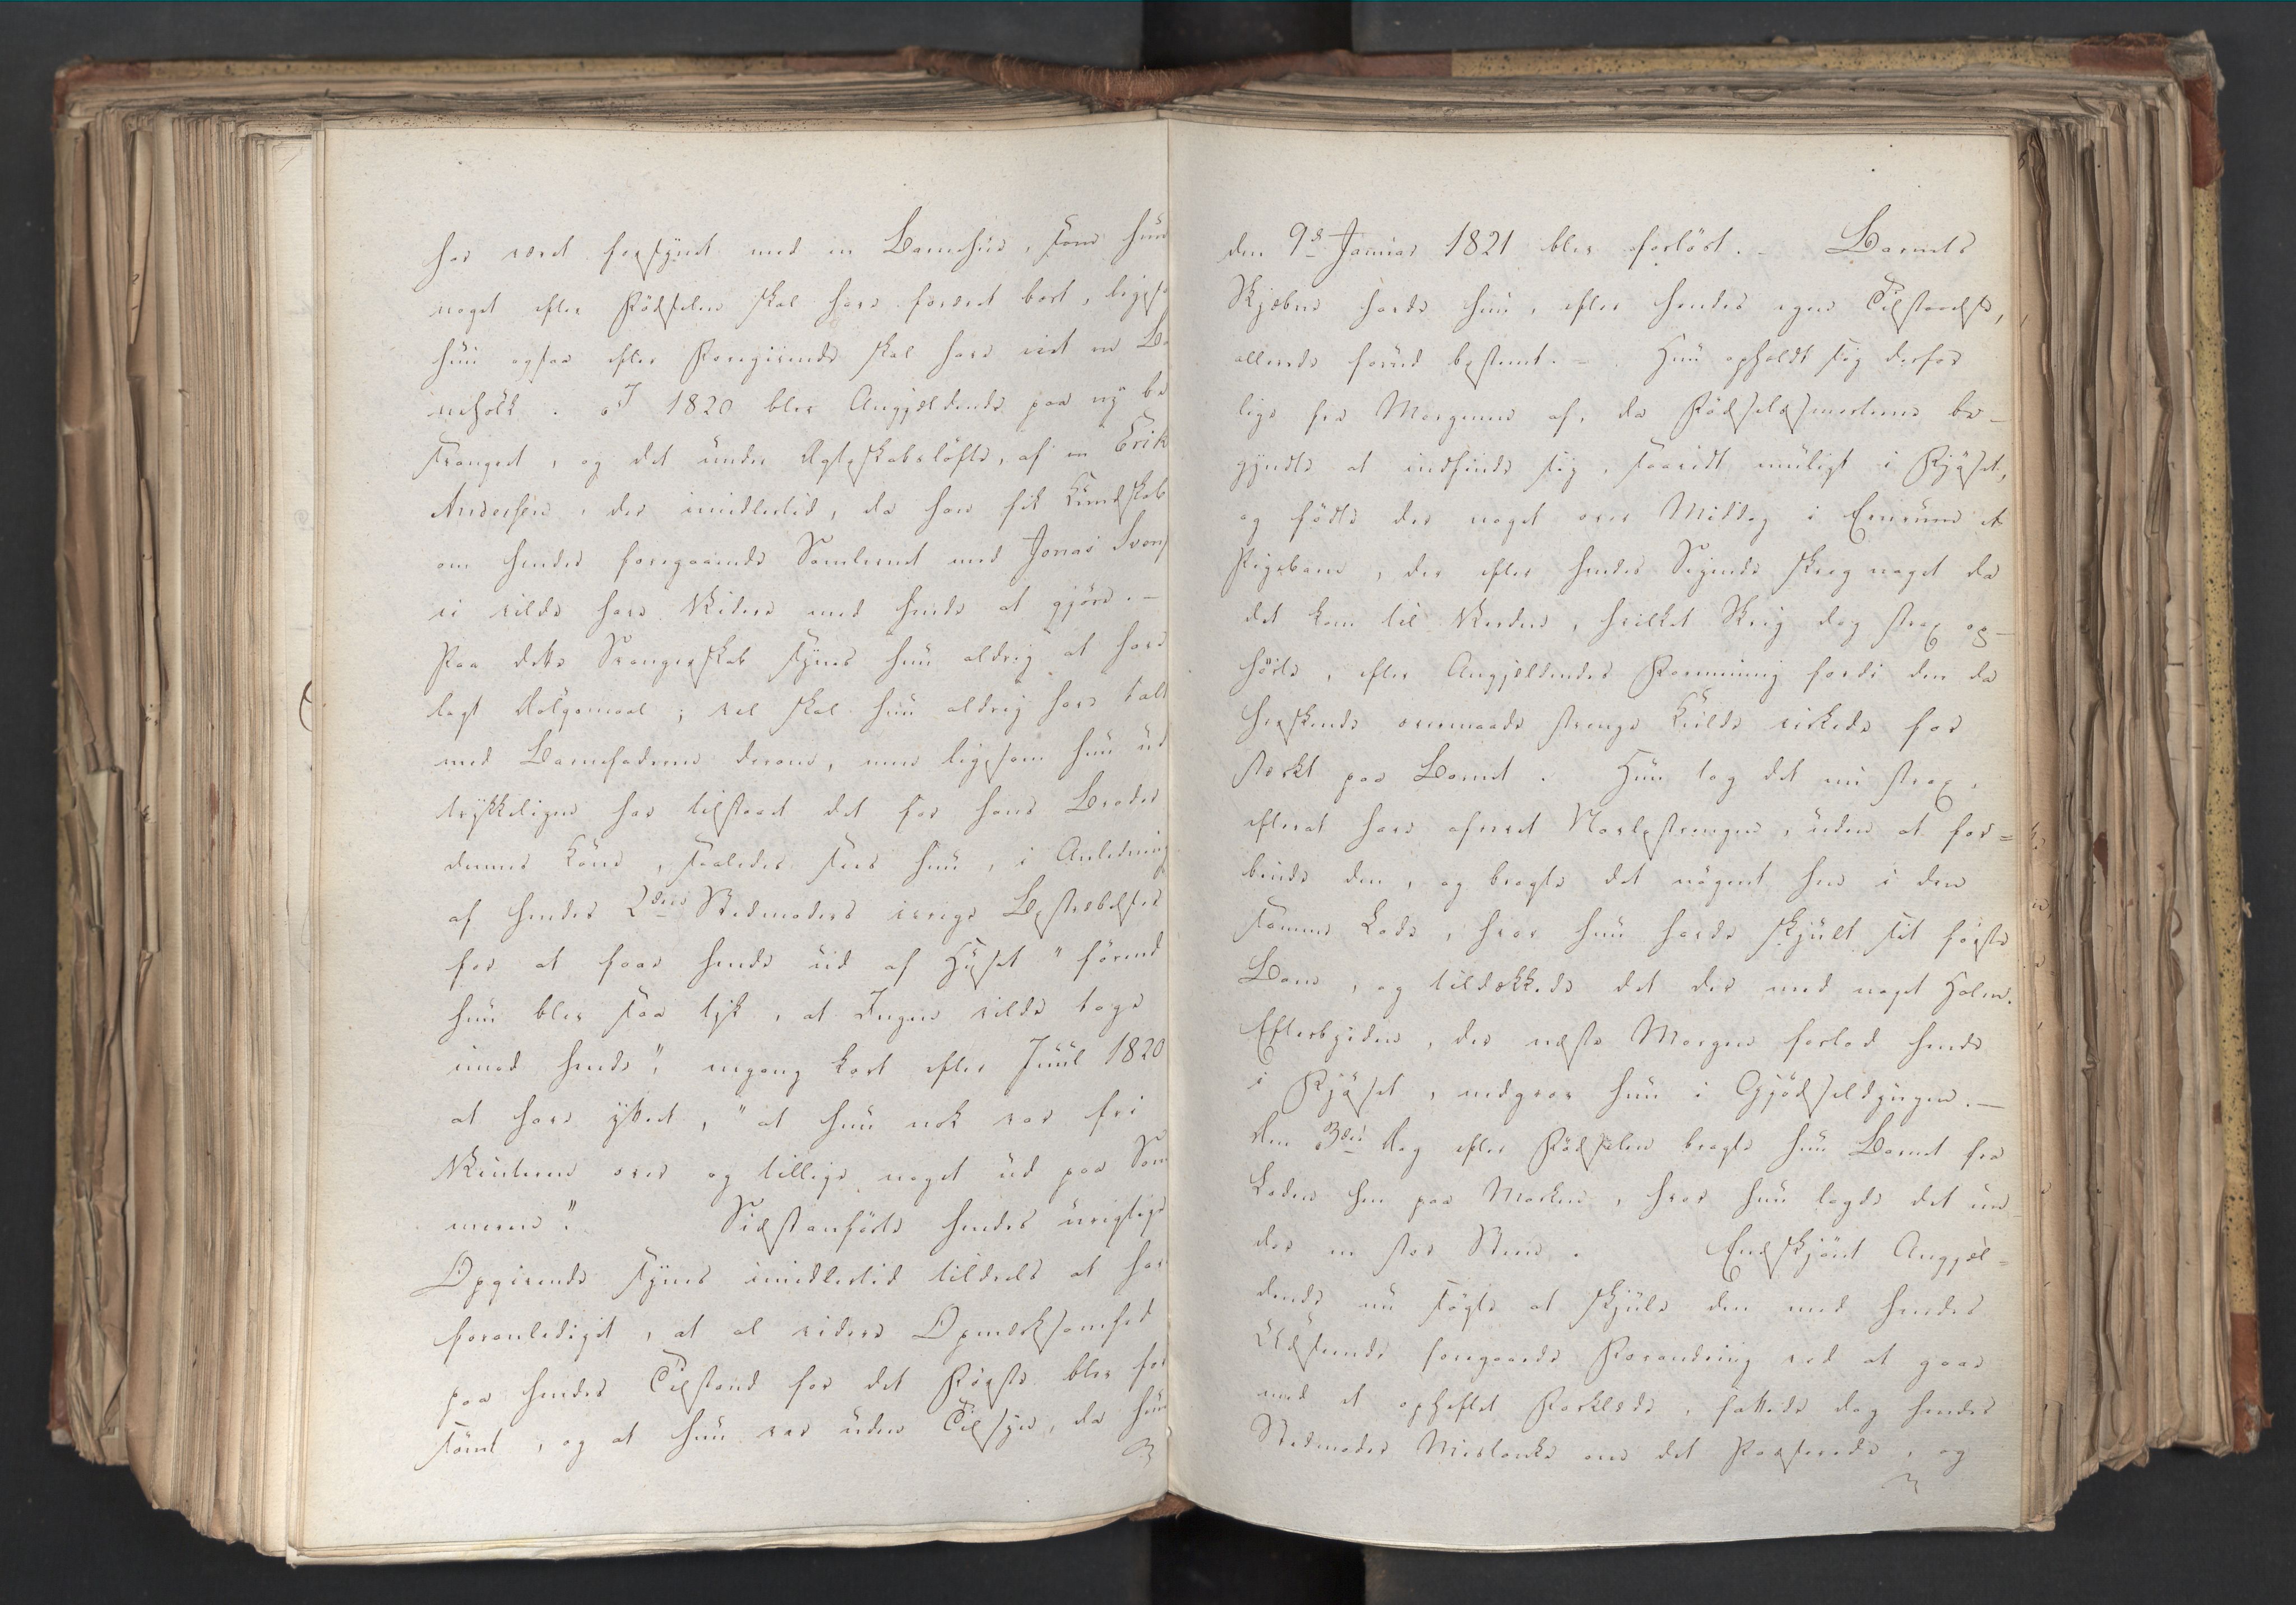 har været forsynet med en Barnehue, som hun
noget efter Födselen skal have foræret bort, ligeso
hun ogsaa efter Foregivende skal have eiet en Ba
neserk. I 1820 blev Angjældende paa ny be
svangret, og det under Ægteskabslöfte, af en Erik
Andersen, der imidlertid, da han fik Kundskab
om hendes foregaaende Samlevnet med Jonas Svens
ei vilde have videre med hende at gjöre. –
Paa dette Svangerskab synes hun aldrig at have
lagt Dölgsmaal; vel skal hun aldrig have talt
med Barnefaderen derom, men ligesom hun ud
trykkeligen har tilstaaet det for hans Broder
dennes Kone, saaledes siees hun, i Anledning
af hendes 2den Stedmoders ivrige Bestræbelser
for at faae hende ud af Huset "förend
hun blev saa tyk, at Ingen vilde tage
imod hende", engang kort efter Juul 1820
at have yttret, "at hun nok var fri
Vinteren over og tillige noget ud paa Som
meren". Sidstanförte hendes urigtige
Opgivende synes imidlertid tildeels at har
foranlediget, at al videre Opmærksomhed
paa hendes Tilstand for det Förste blev for
sömt, og at hun var uden Tilsyn, da hun
den 9de Januar 1821 blev forlöst. – Barnets
Skjæbne havde hun, efter hendes egen Tilstaaelse,
allerede forud bestemt. – Hun opholdt sig derfor
lige fra Morgenen af, da Födselssmerterne be-
gyndte at indfinde sig, saavidt muligt i Fjöset,
og födte der noget over Middag i Eenrum et
Pigebarn, der efter hendes Sigende skreg noget da
det kom til Verden, hvilket Skrig dog strax op-
hörte, efter Angjældendes Formening fordi den da
herskende overmaade strenge Kulde virkede for
stærkt paa Barnet. Hun tog det nu strax,
efterat have afrevet Navlestrengen, uden at for=
binde den, og bragte det nögent hen i den
samme Lade, hvor hun havde skjult sit förste
Barn, og tildækkede det der med noget Halm.
Efterbyrden, der næste Morgen forlod hende
i Fjöset, nedgrov hun i Gjödseldyngen. –
Den 3die Dag efter Födselen bragte hun Barnet fra
Laden hen paa Marken, hvor hun lagde det un-
der en stor Steen. Endskjönt Angjæl=
dende nu sögte at skjule den med hendes
Udseende foregaaede Forandring ved at gaae
med et ophæftet Forklæde, fattede dog hendes
Stedmoder Mistanke om det Passerede, og